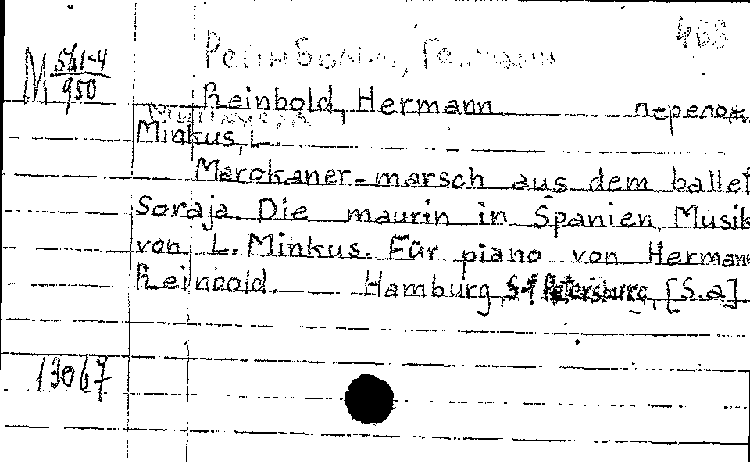 468
Рейнбольд, Германн
М 541-4
950
Reinbold, Hermann перелож.
Минкус, Л.
Minkus, L.
Marokaner-marsch aus dem ballet
Soraja. Die maurin in Spanien. Musik
von L. Minkus. Für piano von Hermann
Reinbold. Hamburg, St Petersburg, [S.a]
13067